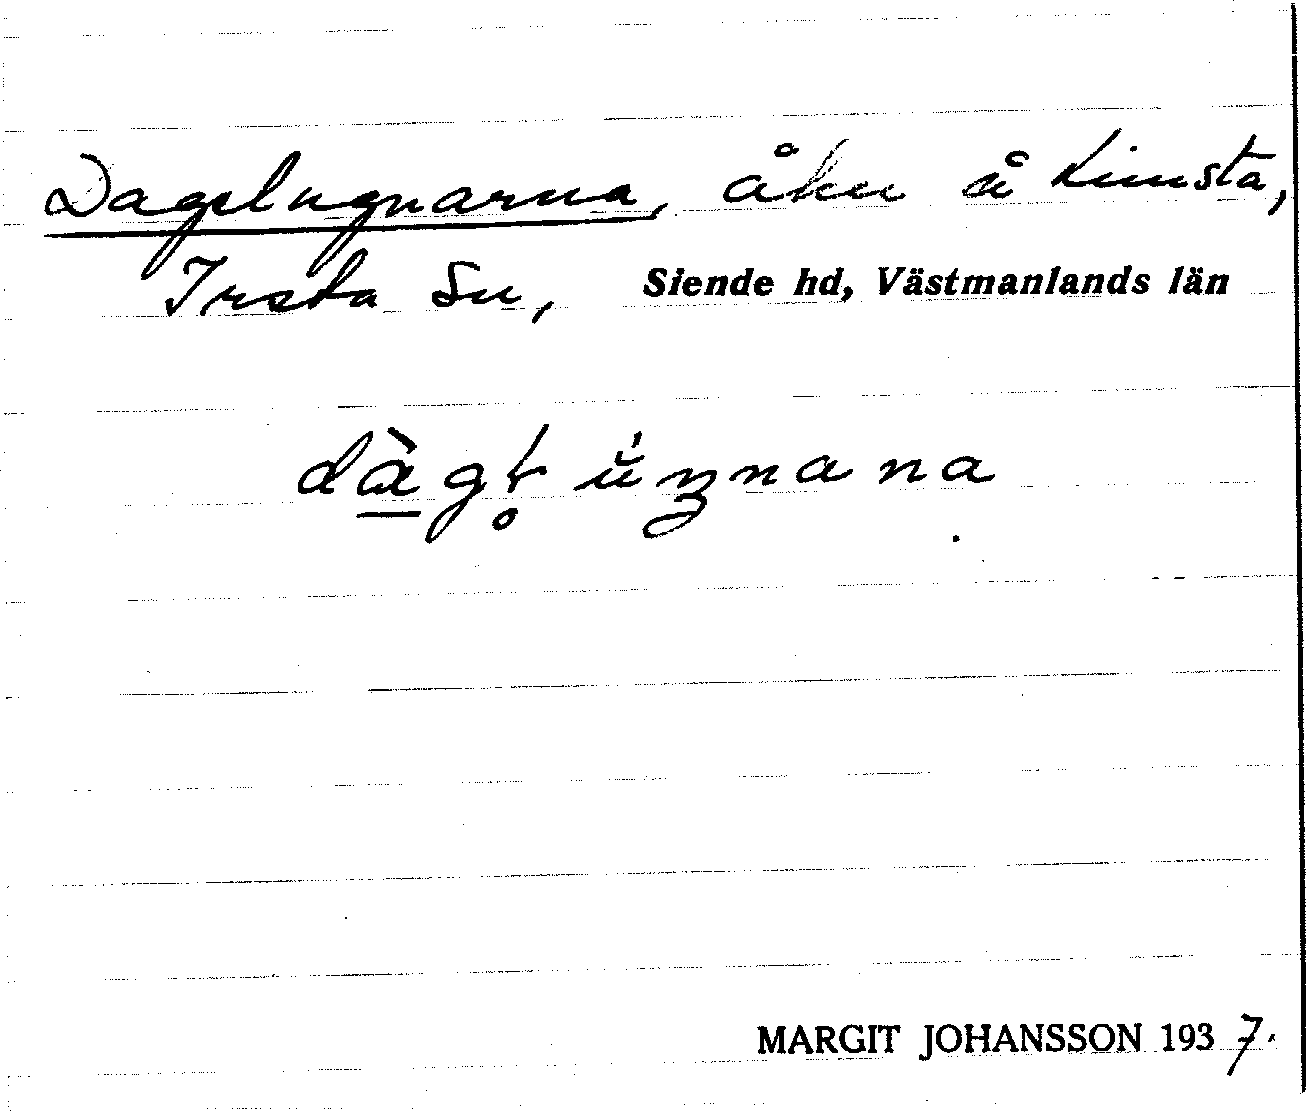 Dagslugnarna, åker å Limsta,
Irsta Sn, Siende hd, Västmanlands län
MARGIT JOHANSSON 1937.